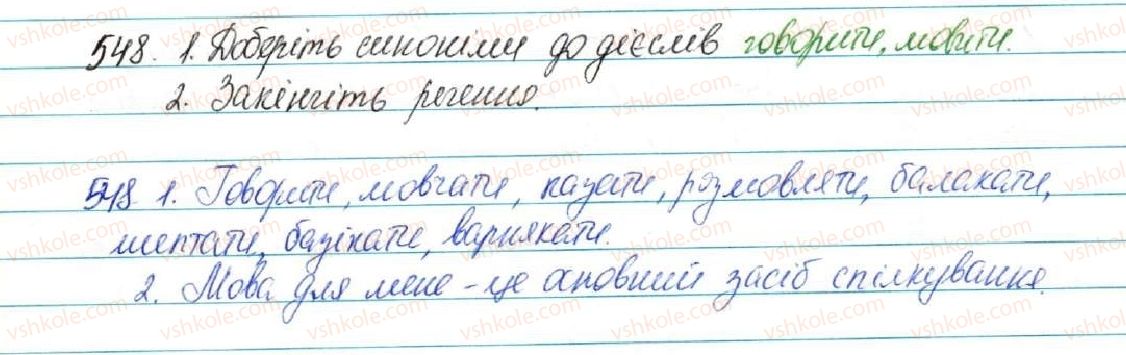 548. 1. Доберіть синоніми до дієслів говорити, мовити.
2. Закінчіть речення.
548. 1. Говорити, мовчати, казати, розмовляти, балакати,
шептати, базікати, варнякати.
2. Мова для мене – це основний засіб спілкування.